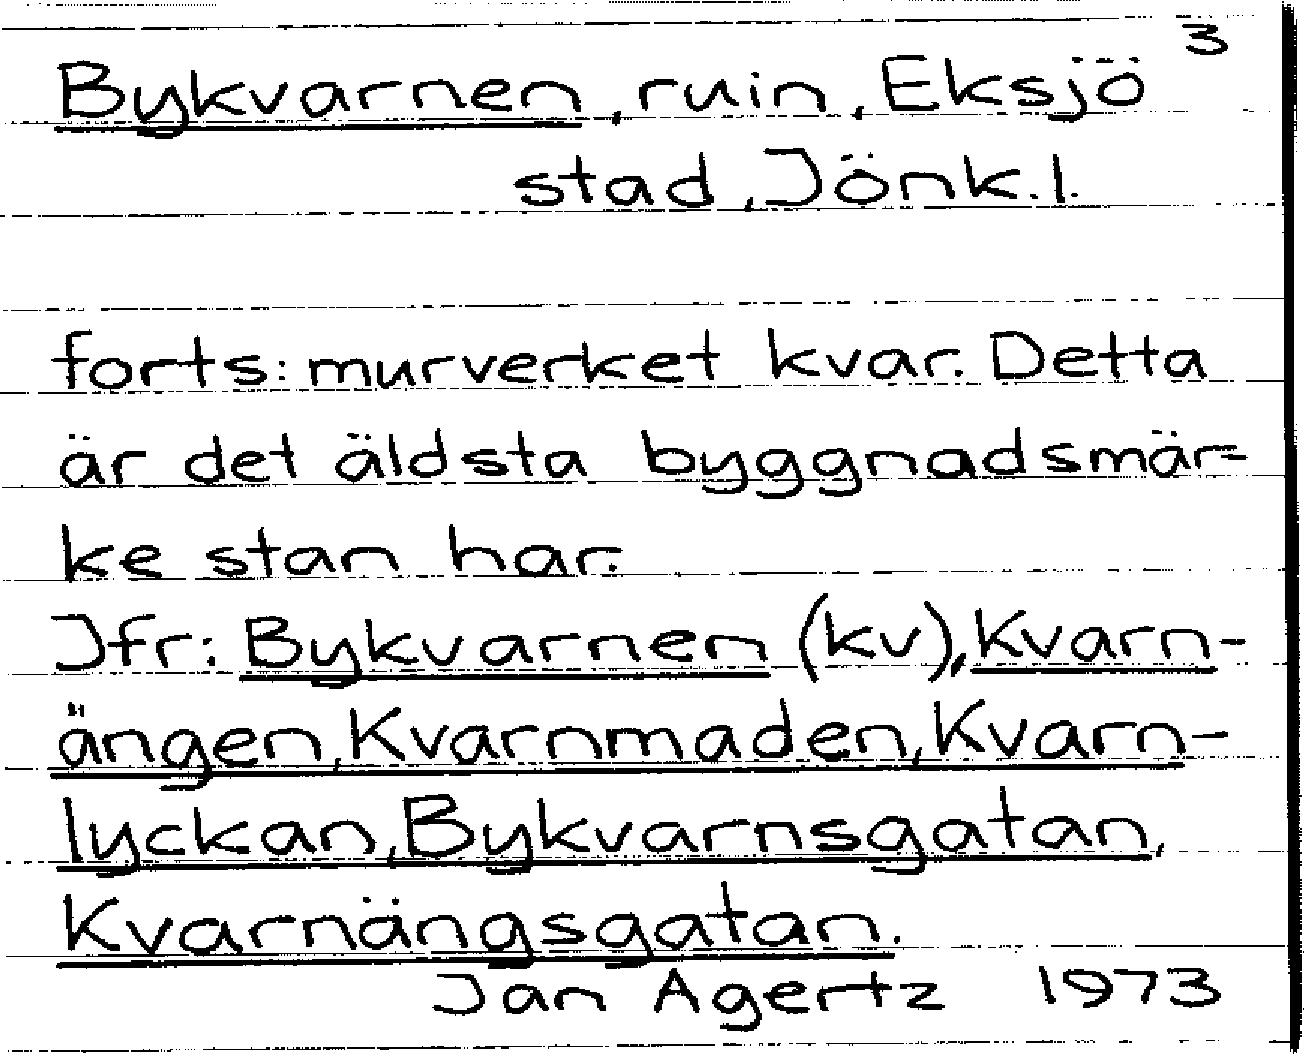 3
Bykvarnen, ruin, Eksjö
stad, Jönk.l.
forts: murverket kvar. Detta
är det äldsta byggnadsmär=
ke stan har.
Jfr: Bykvarnen (kv), Kvarn-
ängen, Kvarnmaden, Kvarn-
lyckan, Bykvarnsgatan,
Kvarnängsgatan.
Jan Agertz 1973